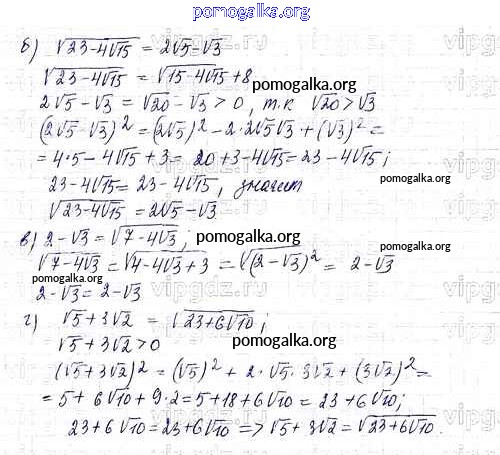 pomogalka.org
б) √23-4√15 = 2√5-√3
√23-4√15 = √15-4√15+8
pomogalka.org
2√5-√3 = √20-√3 > 0, т.к √20 > √3
(2√5-√3)² = (2√5)² - 2·2√5√3 + (√3)² =
= 4·5-4√15+3 = 20+3-4√15 = 23-4√15;
pomogalka.org
23-4√15 = 23-4√15, значит
√23-4√15 = 2√5-√3
в) 2-√3 = √7-4√3;
pomogalka.org
√7-4√3 = √4-4√3+3 = √(2-√3)² = 2-√3
2-√3 = 2-√3
pomogalka.org
г) √5+3√2 = √23+6√10;
√5+3√2 > 0
pomogalka.org
(√5+3√2)² = (√5)² + 2·√5·3√2 + (3√2)² =
= 5+6√10+9·2 = 5+18+6√10 = 23+6√10;
23+6√10 = 23+6√10 => √5+3√2 = √23+6√10.
pomogalka.org